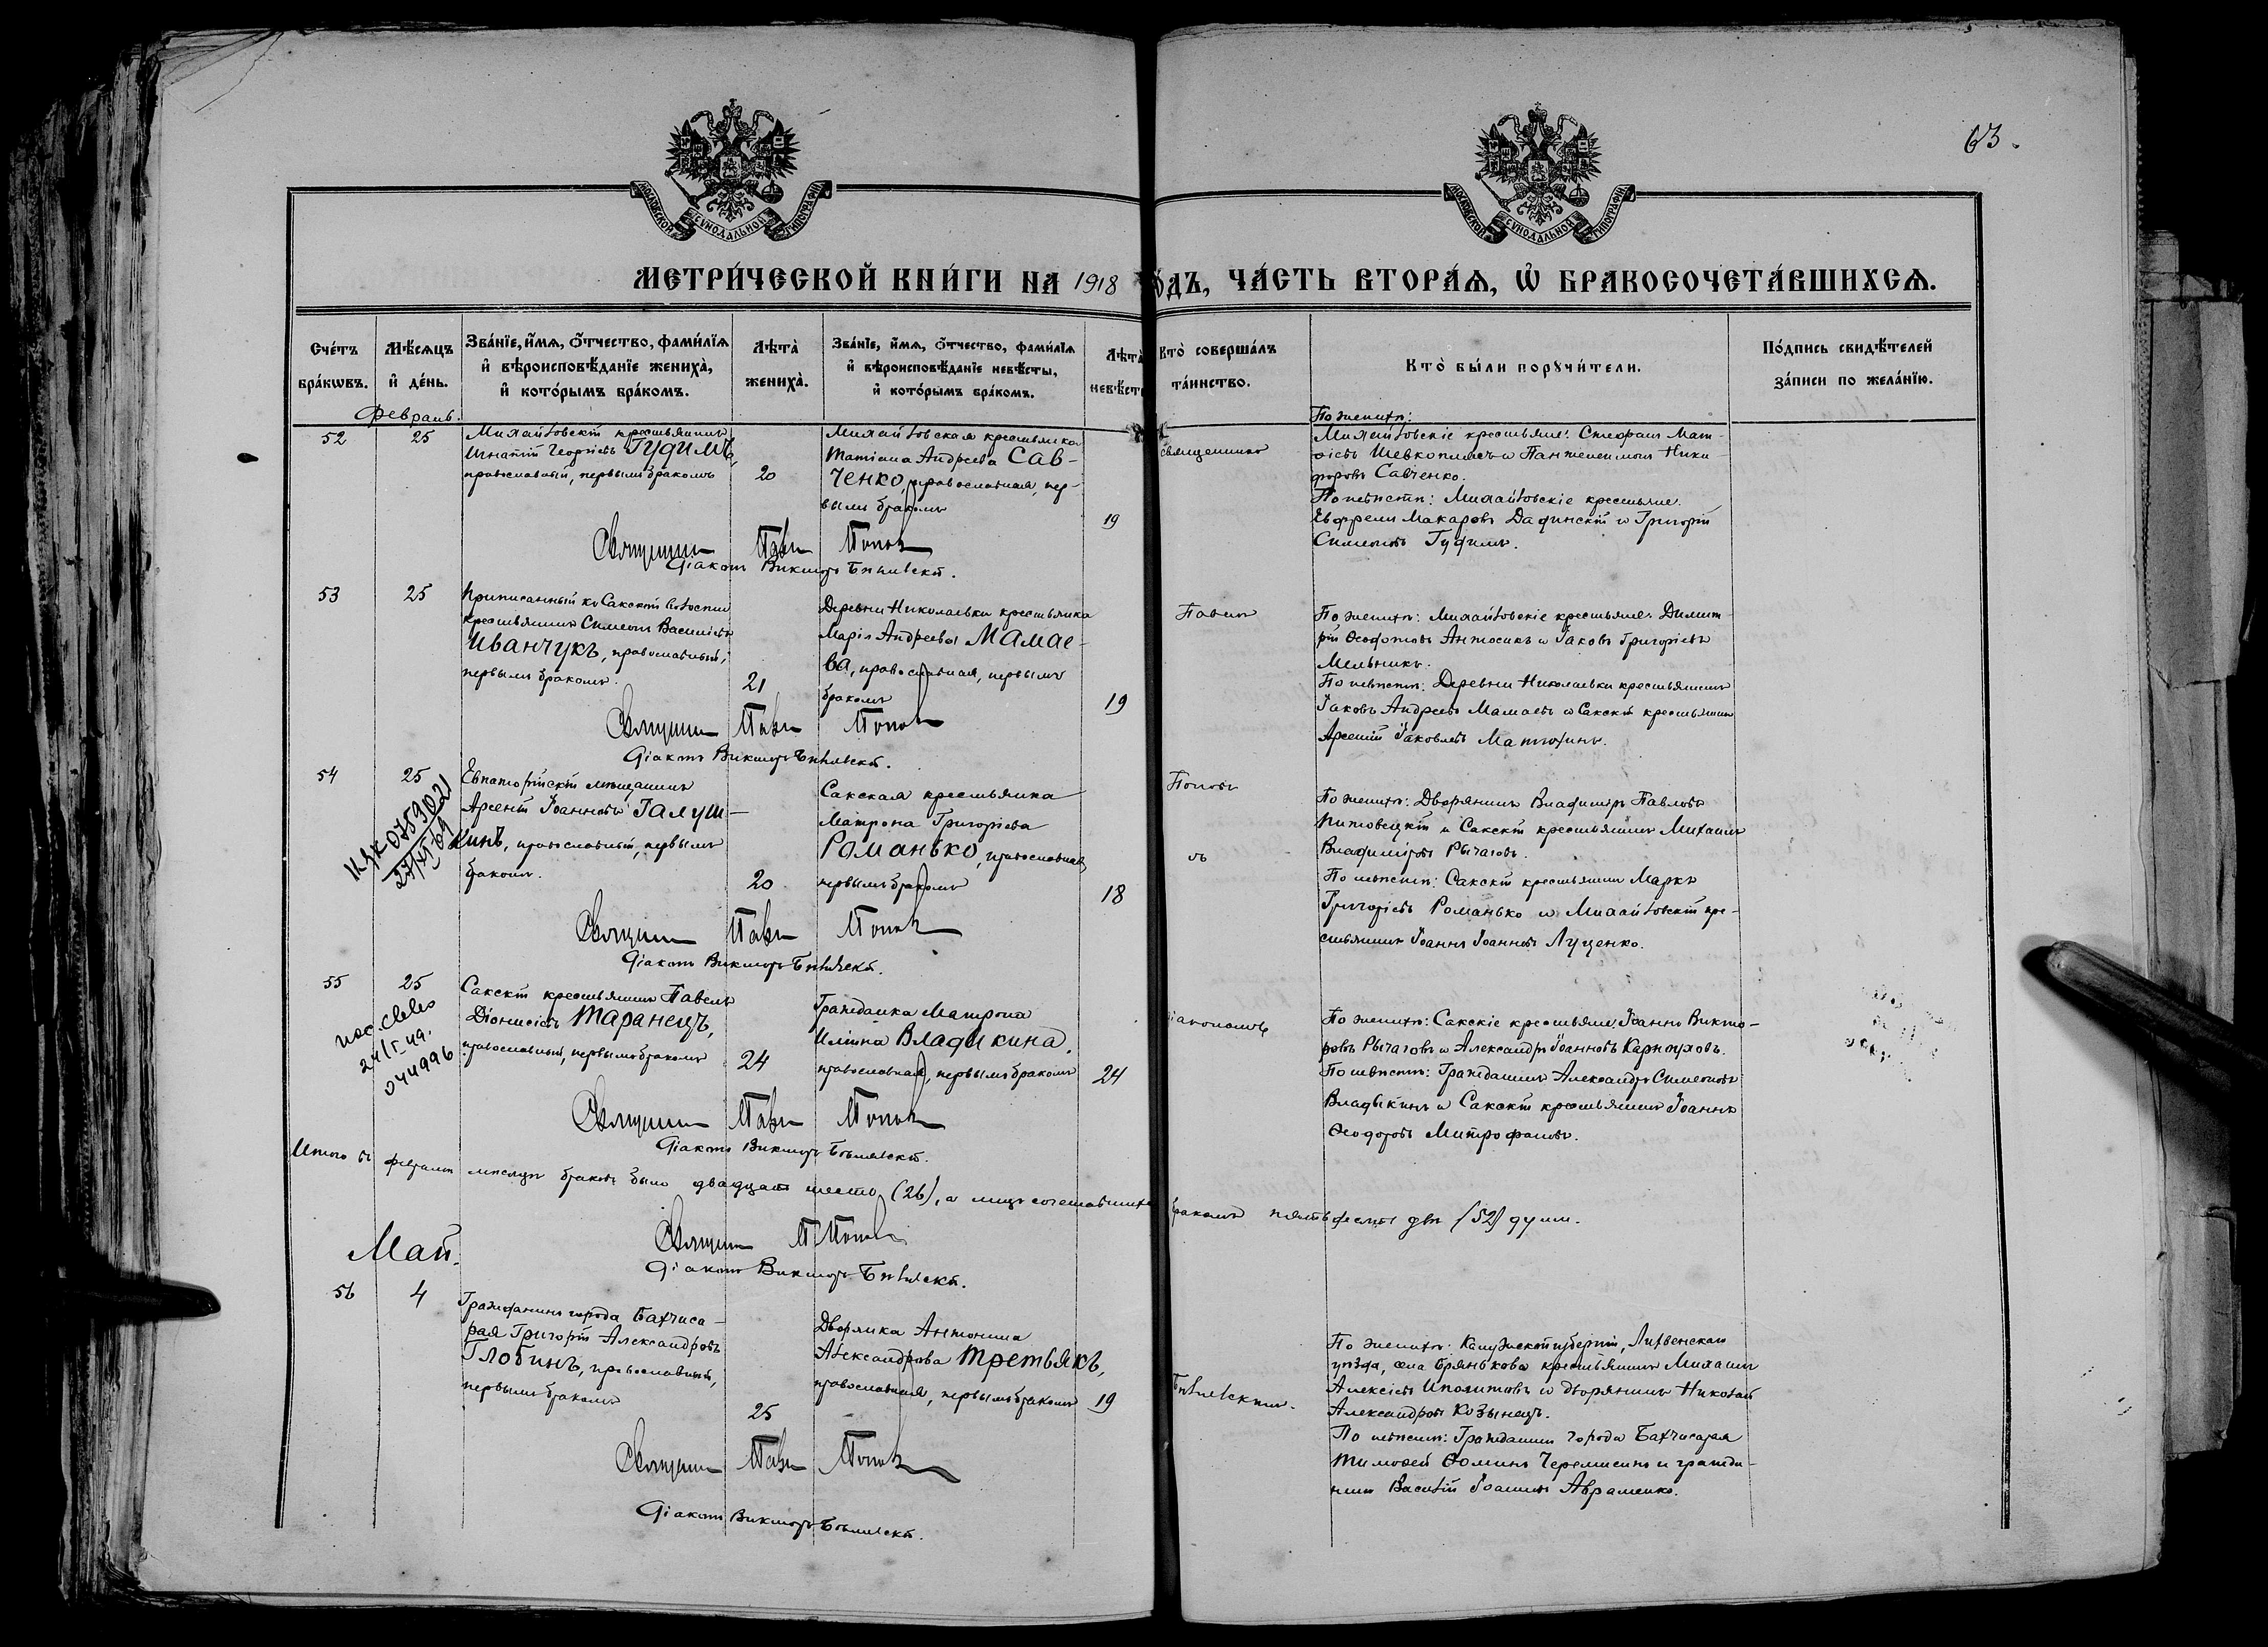 63.
МОСКОВСКОЙ СѴНОДАЛЬНОЙ ТИПОГРАФІИ
МОСКОВСКОЙ СѴНОДАЛЬНОЙ ТИПОГРАФІИ
МЕТРИ́ЧЕСКОЙ КНИ́ГИ НА 1918 го́дъ, ЧА́СТЬ ВТОРА́Ѧ, Ѡ БРАКОСОЧЕТА́ВШИХСѦ.
Сче́тъ бра́кѡвъ.
Мѣ́сѧцъ и҆ де́нь.
Зва́нїе, и҆́мѧ, о҆́тчество, фами́лїѧ
и҆ вѣроисповѣ́данїе жениха̀,
и҆ кото́рымъ бра́комъ.
Лѣ́та̀ жениха̀.
Зва́нїе, и҆́мѧ, о҆́тчество, фами́лїѧ
и҆ вѣроисповѣ́данїе невѣ́сты,
и҆ кото́рымъ бра́комъ.
Лѣ́та̀ невѣ́сты
Кто̀ соверша́лъ
та́инство.
Кто̀ бы́ли порꙋчи́тели.
По́дпись свидѣ́телей
за́писи по жела́нїю.
Февраль.
52
25
Михайловскій крестьянинъ
Игнатій Георгіевъ Гудима,
православный, первымъ бракомъ
20
Михайловская крестьянка
Татіана Андреева Сав-
ченко, православная, пер-
вымъ бракомъ
19
Священникъ
По женихѣ:
Михайловскіе крестьяне: Стефанъ Мат-
ѳіевъ Шевкоплясъ и Пантелеимонъ Ники-
форовъ Савченко.
По невѣстѣ: Михайловскіе крестьяне:
Макаровъ и Григорій
Симеоновъ Гудима.
Священникъ Павелъ Поповъ
Діаконъ Викторъ Бѣлявскій.
53
25
Приписанный къ Сакской волости
крестьянинъ Симеонъ Василіевъ
Иванчукъ, православный,
первымъ бракомъ.
21
Деревни Николаевки крестьянка
Марія Андреева Мамае-
ва, православная, первымъ
бракомъ
19
Павелъ
По женихѣ: Михайловскіе крестьяне: Димит-
рій Ѳеофотовъ Антосикъ и Іаковъ Григоріевъ
Мельникъ.
По невѣстѣ: Деревни Николаевки крестьянинъ
Іаковъ Андреевъ Мамаевъ и Сакскій крестьянинъ
Арсеній Іаковлевъ Матюхинъ.
Священникъ Павелъ Поповъ
Діаконъ Викторъ Бѣлявскій.
54
25
Евпаторійскій мѣщанинъ
Арсеній Іоанновъ Галуш-
кинъ, православный, первымъ
бракомъ.
20
Сакская крестьянка
Матрона Григоріева
Романько, православная,
первымъ бракомъ
18
Поповъ
съ
По женихѣ: Дворянинъ Владиміръ Павловъ
и Сакскій крестьянинъ Михаилъ
Владиміровъ Рычаговъ.
По невѣстѣ: Сакскій крестьянинъ Маркъ
Григоріевъ Романько и Михайловскій кре-
стьянинъ Іоаннъ Іоанновъ Луценко.
Священникъ Павелъ Поповъ
Діаконъ Викторъ Бѣлявскій.
55
25
Сакскій крестьянинъ Павелъ
Діонисіевъ Таранецъ,
православный, первымъ бракомъ
24
Гражданка Матрона
Иліина Владикина,
православная, первымъ бракомъ
24
діакономъ
По женихѣ: Сакскіе крестьяне Іоаннъ Викто-
ровъ Рычаговъ и Александръ Іоанновъ Карнауховъ.
По невѣстѣ: Гражданинъ Александръ Симеоновъ
Владыкинъ и Сакскій крестьянинъ Іоаннъ
Ѳеодоровъ Митрофановъ.
Священникъ Павелъ Поповъ
Діаконъ Викторъ Бѣлявскій.
Итого въ февралѣ мѣсяцѣ браковъ было двадцать шесть (26), а лицъ сочетавшихся бракомъ пятьдесятъ двѣ (52) души.
Священникъ П Поповъ
Діаконъ Викторъ Бѣлявскій.
Май.
56
4
Гражданинъ города Бахчиса-
рая Григорій Александровъ
Глобинъ, православный,
первымъ бракомъ
25
Дворянка Антонина
Александрова Третьякъ,
православная, первымъ бракомъ
19
Бѣлявскимъ.
По женихѣ: Калужской губерніи, Лихвенскаго
уѣзда, села крестьянинъ Михаилъ
Алексіевъ Иполитовъ и дворянинъ Николай
Александровъ Козынецъ.
По невѣстѣ: Гражданинъ города Бахчисарая
Тимоѳей Ѳоминъ Черемисинъ и гражда-
нинъ Василій Іоанновъ Авраменко.
Священникъ Павелъ Поповъ
Діаконъ Викторъ Бѣлявскій.